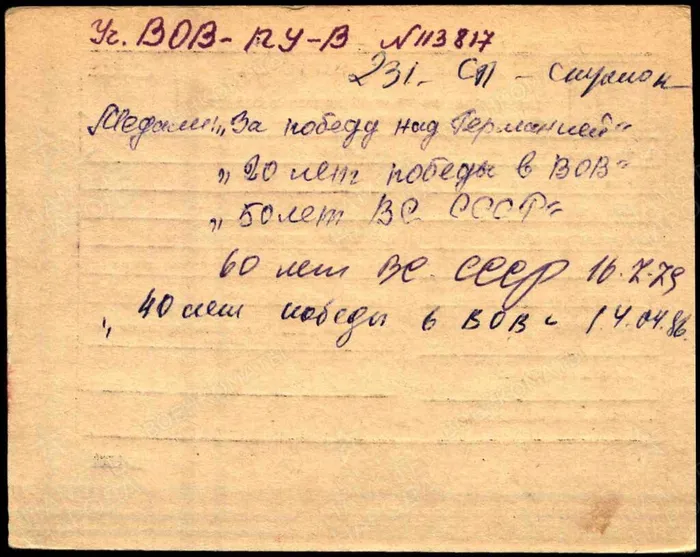 Уч. ВОВ - ПУ-В N 113817
231 - СП - стрелок
Медали: „За победу над Германией“
„20 лет победы в ВОВ“
„50 лет ВС СССР“
60 лет ВС СССР 16.X-79
„40 лет победы в ВОВ“ 14.04.86.